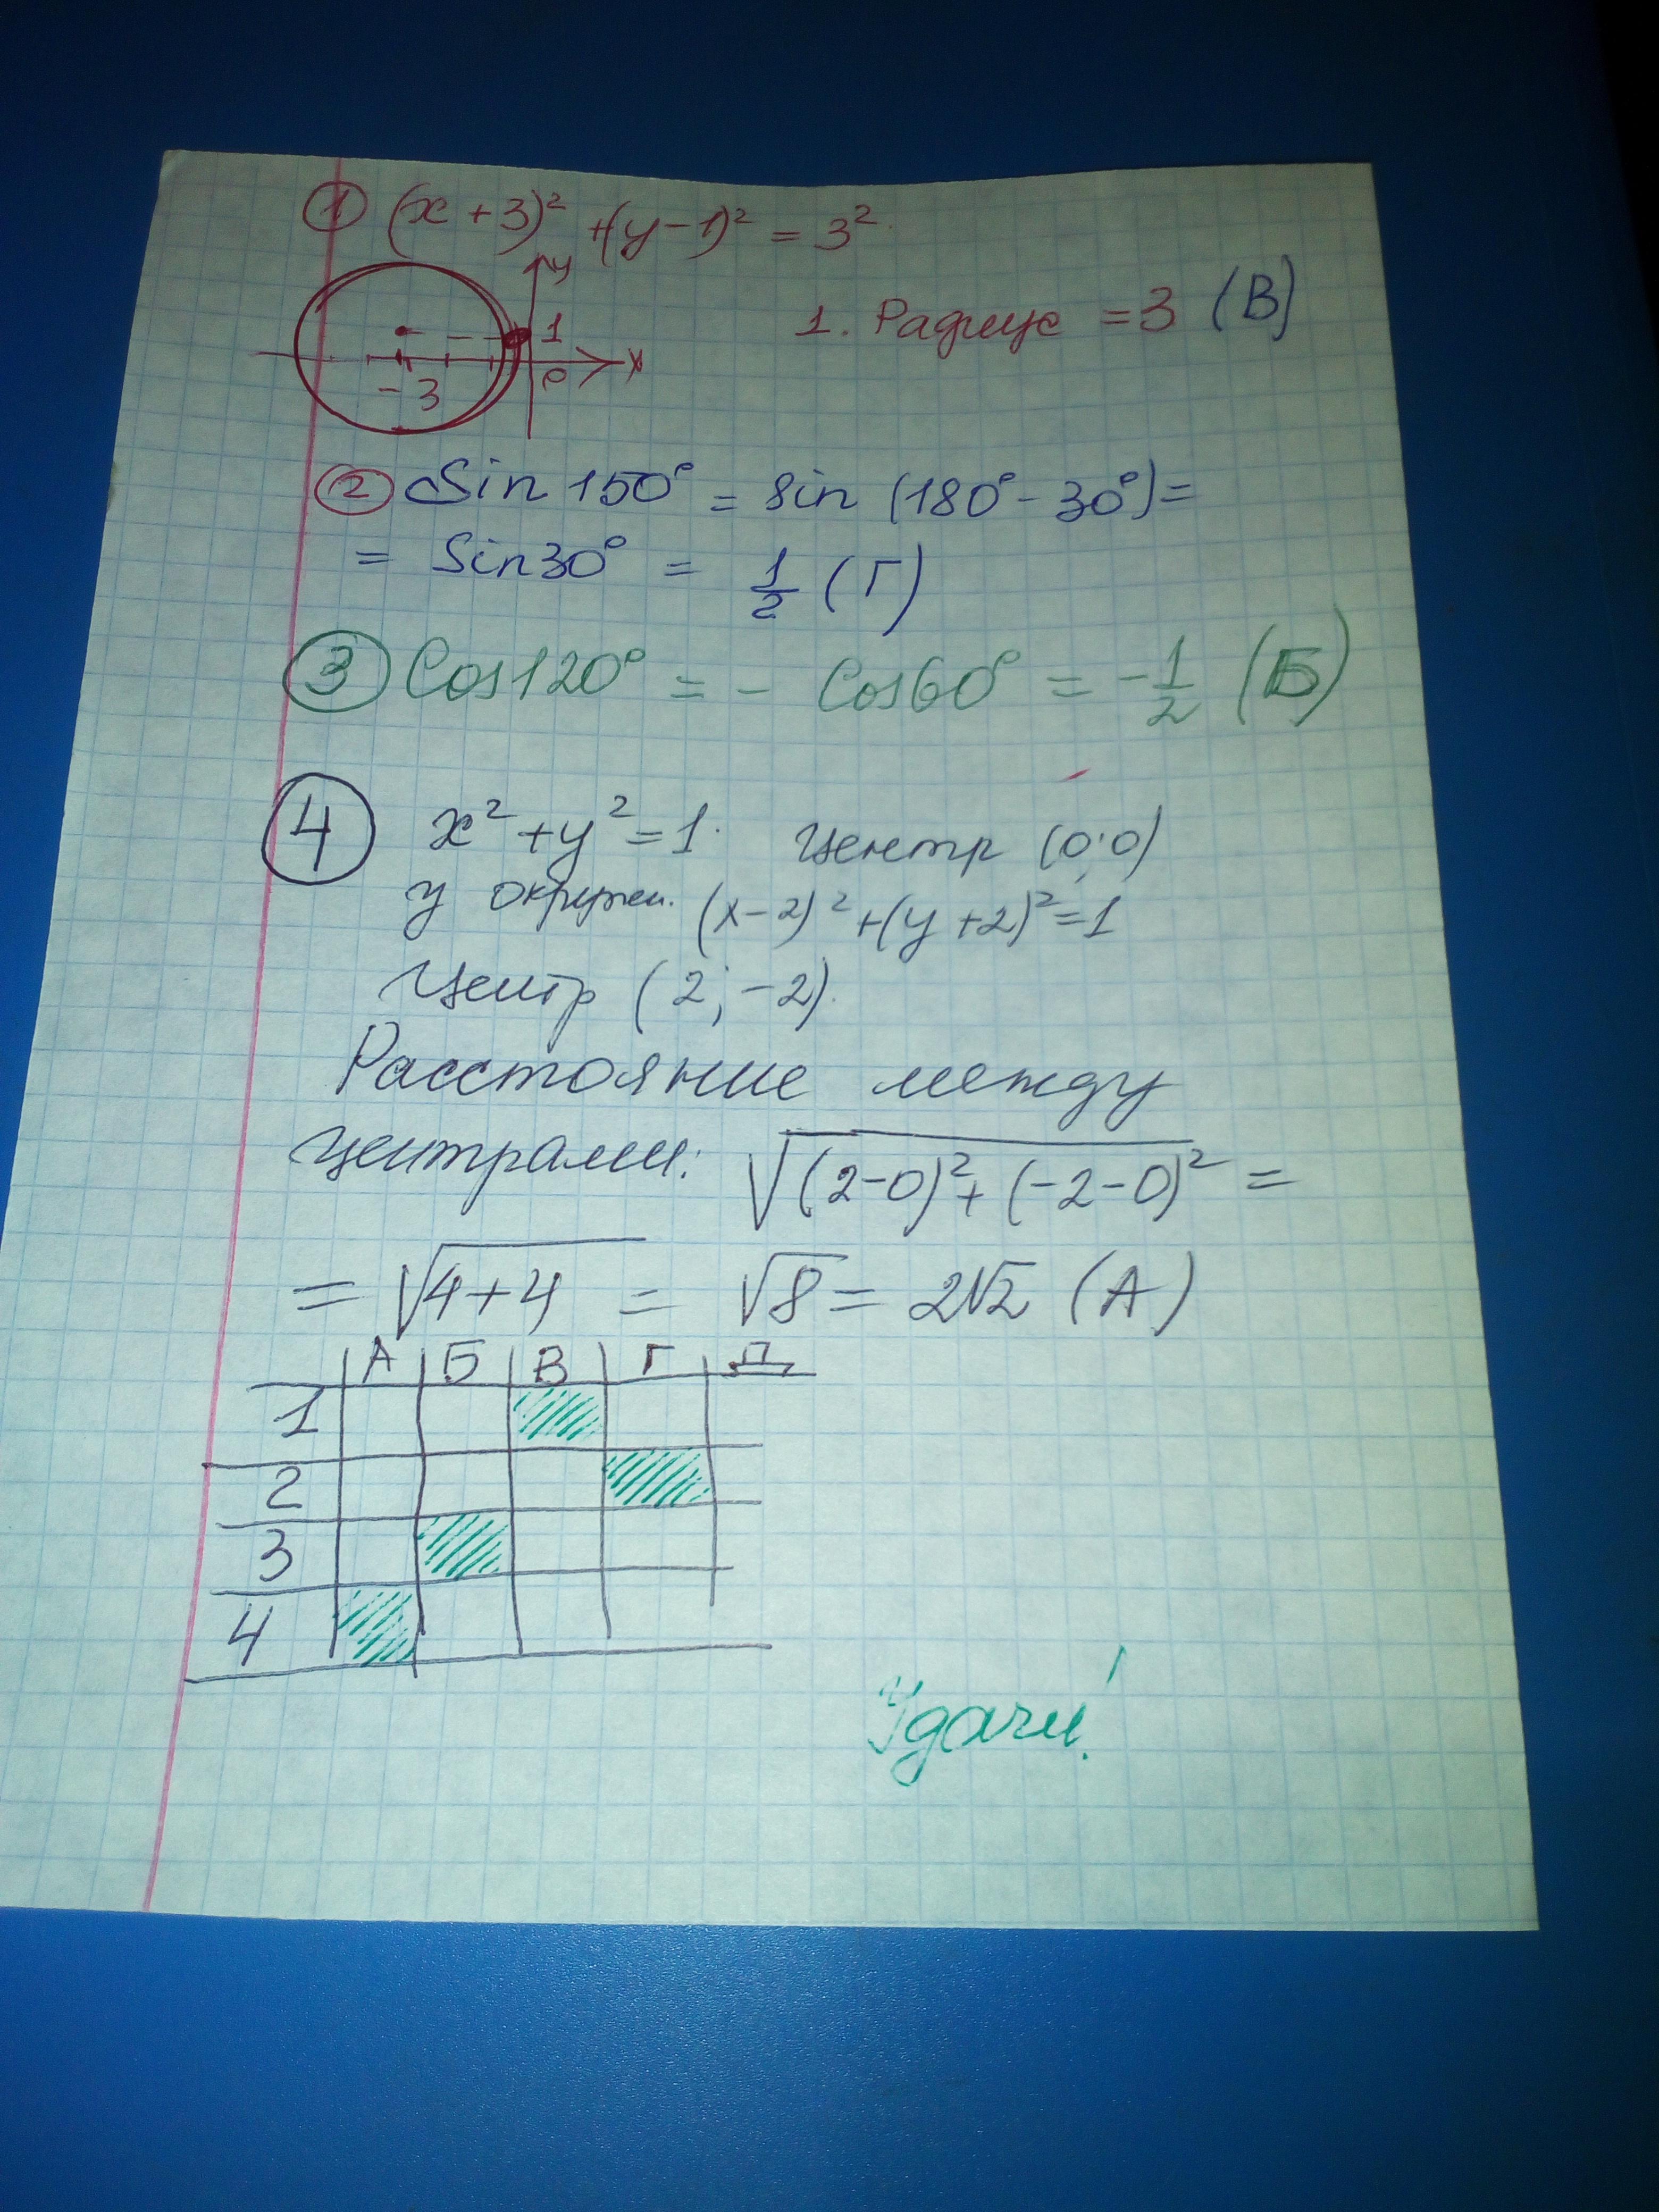 ① (x + 3)² + (y − 1)² = 3²
y
1
0
x
− 3
1. Радиус = 3 (В)
② Sin 150° = sin (180° − 30°) =
= Sin 30° = 1/2 (Г)
③ Cos 120° = − Cos 60° = − 1/2 (Б)
④ x² + y² = 1. Центр (0; 0)
у окружн. (x − 2)² + (y + 2)² = 1
Центр (2; −2).
Расстояние между
центрами: √((2−0)² + (−2−0)²) =
= √(4+4) = √8 = 2√2 (А)
А Б В Г Д
1
2
3
4
Удачи!